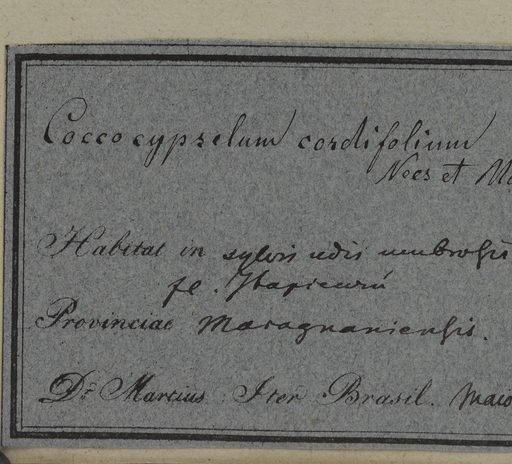 Coccocypselum cordifolium
Nees et
Habitat in sylvis udis umbrosis
fl. Itapicurú
Provinciae Maragnaniensis.
Dr. Martius Iter Brasil.